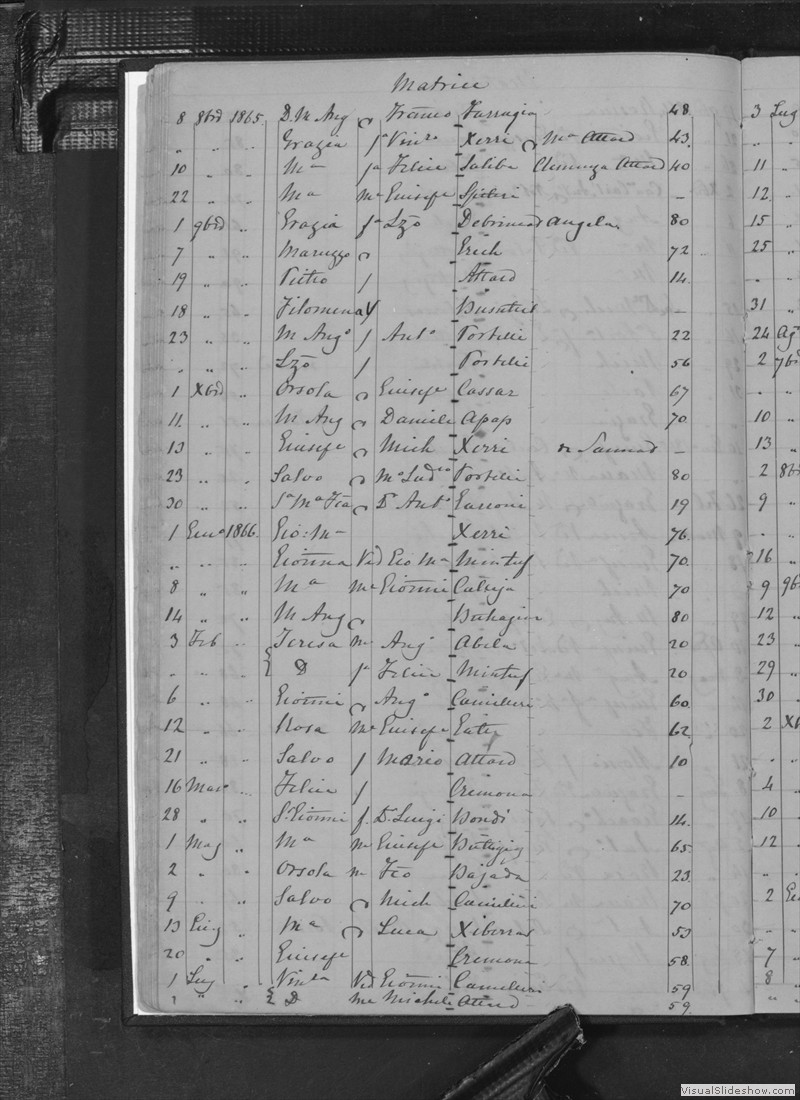 Matrice
8 8bre 1865. D. M Ang Franco Farrugia 48 3 Lug
" " " Grazia fa Vinzo Xerri Ma Attard 43
10 " " Ma fa Felice Saliba Clemenza Attard 40 11 "
22 " " Ma me Giusepe Spiteri – 12 "
1 9bre " Grazia fa Lzo Debrincat Angela 80 15 "
7 " " Maruzzo Grech 72 25 "
19 " " Pietro f Attard 14
18 " " Filomena Busuttil – 31 "
23 " " M Ango f Anto Portelli 22 24 Ago
" " " Lzo f Portelli 56 2 7bre
1 Xbre " Orsola Giusepe Cassar 67
11 " " M Ang Daniele Apap 70 10 "
13 " " Giusepe Mich Xerri – 13 "
23 " " Salvo Portelli 80 2 8bre
30 " " D Anto 19 9 "
1 Genn 1866. Gio: Ma Xerri 76
" " " Gionna Vid Gio Ma Mintuf 70 16 "
8 " " Ma me Gionni Calleja 70 9 9b
14 " " M Ang Buhagiar 80 12 "
3 Feb " Teresa me Ango Abela 20 23 "
" " " D fa Felice Mintuf 20 29 "
6 " " Gionni Ango Camilleri 60 30 "
12 " " Rosa me Giusepe 62 2 Xb
21 " " Salvo f Mario Attard 10
16 Mar " Felice f Cremona – 4 "
28 " " Gionni f. D. Luigi Bondi 14 10 "
1 Mag " Ma me Giusepe Buttigieg 65 12 "
2 " " Orsola me Fco Bajada 23
9 " " Salvo Mich Camilleri 70 2
13 Giug " Ma Luca Xiberras 53
20 " " Giusepe Cremona 58 7 "
1 Lug " Vinza Vid Gionni Camilleri 59 8 "
" " " D me Michele Attard 59
VisualSlideshow.com